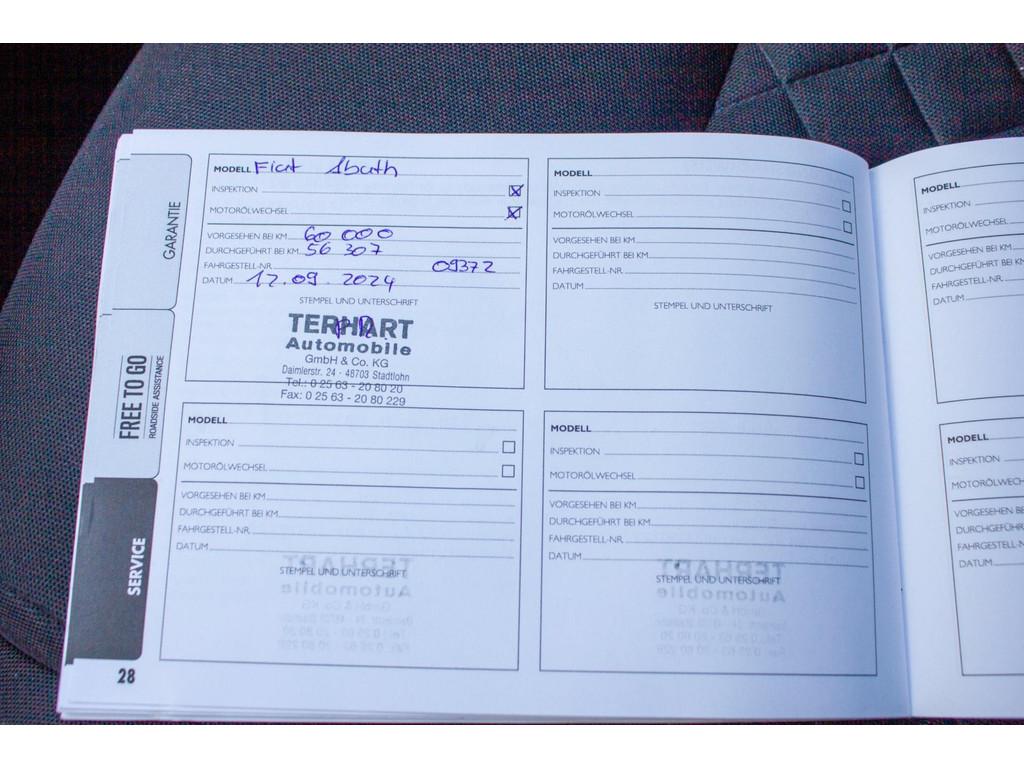 GARANTIE
FREE TO GO
ROADSIDE ASSISTANCE
SERVICE
28
MODELL Fiat Abarth
INSPEKTION
MOTORÖLWECHSEL
VORGESEHEN BEI KM 60 000
DURCHGEFÜHRT BEI KM 56 307
FAHRGESTELL-NR. 09372
DATUM 12.09.2024
STEMPEL UND UNTERSCHRIFT
TERHART
Automobile
GmbH & Co. KG
Daimlerstr. 24 - 48703 Stadtlohn
Tel.: 0 25 63 - 20 80 20
Fax: 0 25 63 - 20 80 229
MODELL
INSPEKTION
MOTORÖLWECHSEL
VORGESEHEN BEI KM
DURCHGEFÜHRT BEI KM
FAHRGESTELL-NR.
DATUM
STEMPEL UND UNTERSCHRIFT
MODELL
INSPEKTION
MOTORÖLWECHSEL
VORGESEHEN BEI KM
DURCHGEFÜHRT BEI KM
FAHRGESTELL-NR.
DATUM
STEMPEL UND UNTERSCHRIFT
MODELL
INSPEKTION
MOTORÖLWECHSEL
VORGESEHEN BEI KM
DURCHGEFÜHRT BEI KM
FAHRGESTELL-NR.
DATUM
STEMPEL UND UNTERSCHRIFT
MODELL
INSPEKTION
MOTORÖLWECHSEL
VORGESEHEN BEI KM
DURCHGEFÜHRT BEI KM
FAHRGESTELL-NR.
DATUM
MODELL
INSPEKTION
MOTORÖLWECH
VORGESEHEN BE
DURCHGEFÜHRT
FAHRGESTELL-N
DATUM